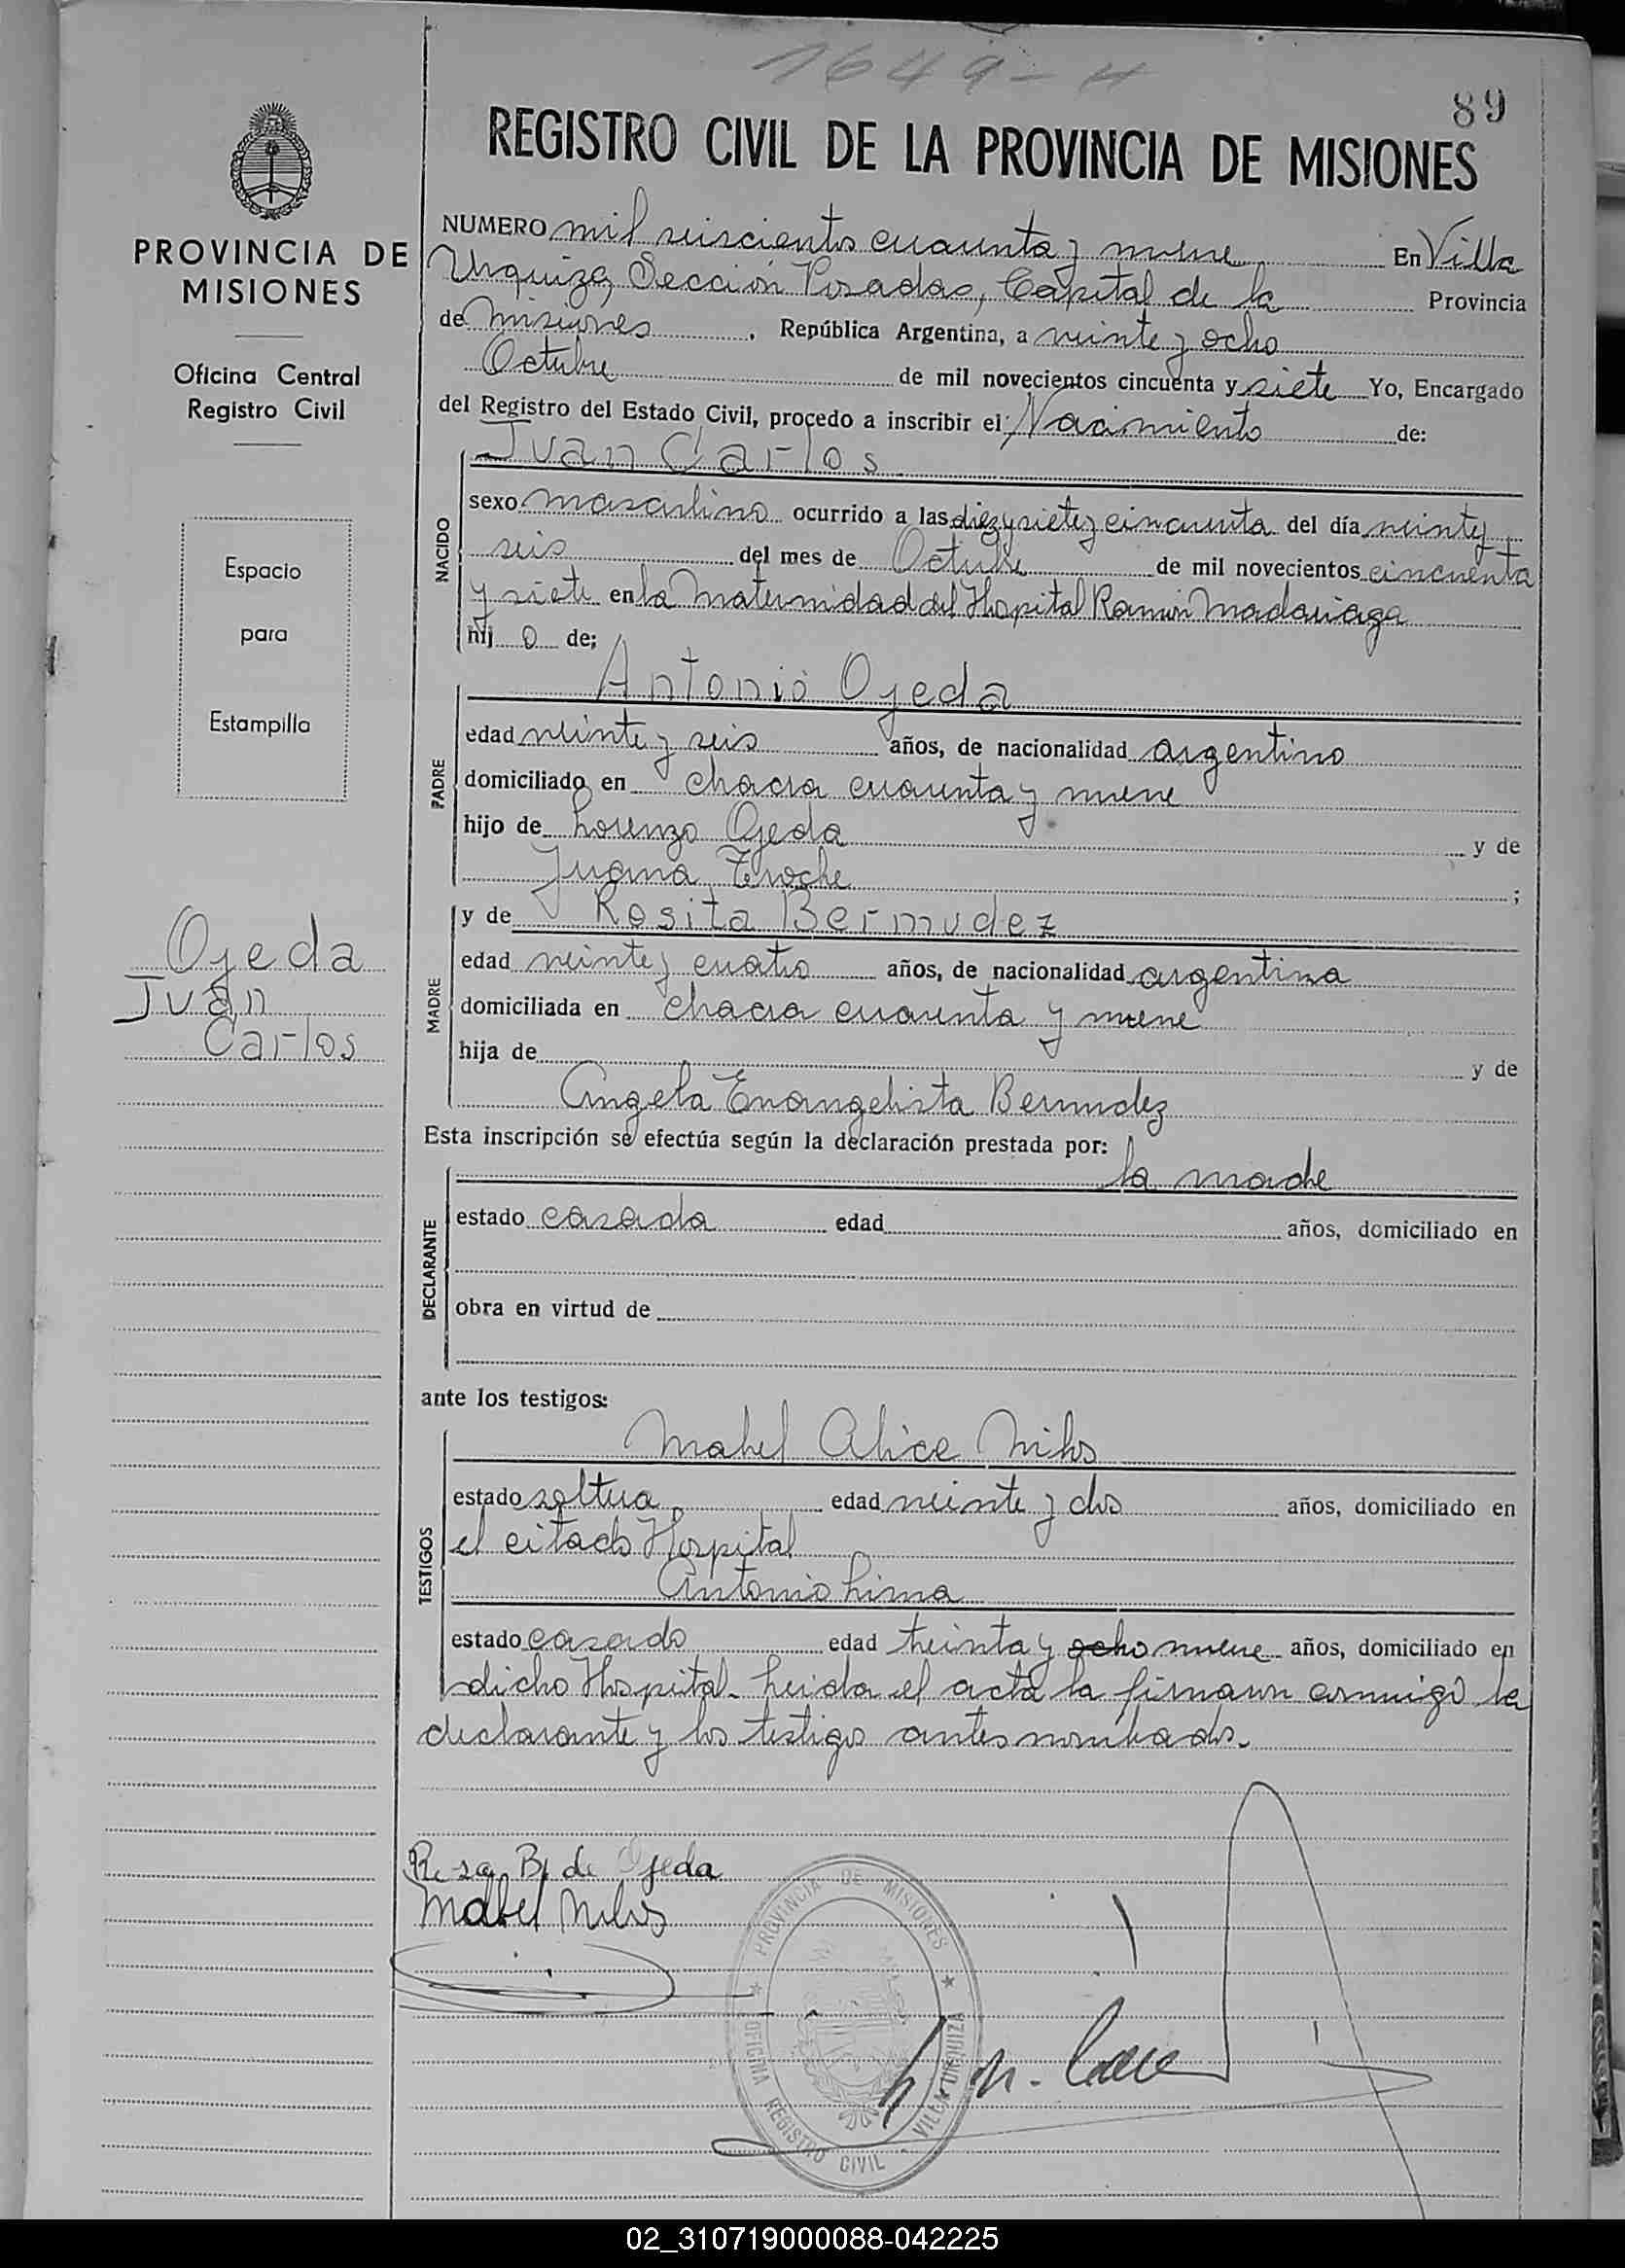 1649-H
89
REGISTRO CIVIL DE LA PROVINCIA DE MISIONES
PROVINCIA DE
MISIONES
Oficina Central
Registro Civil
Espacio
para
Estampilla
Ojeda
Juan
Carlos
NUMERO mil seiscientos cuarenta y nueve En Villa
Urquiza, Sección Posadas, Capital de la Provincia
de Misiones, República Argentina, a veinte y ocho
Octubre de mil novecientos cincuenta y siete Yo, Encargado
del Registro del Estado Civil, procedo a inscribir el Nacimiento de:
Juan Carlos
NACIDO
sexo masculino ocurrido a las diez y siete y cincuenta del día veinte y
seis del mes de Octubre de mil novecientos cincuenta
y siete en la Maternidad del Hospital Ramón Madariaga
hijo de;
Antonio Ojeda
PADRE
edad veinte y seis años, de nacionalidad argentino
domiciliado en chacra cuarenta y nueve
hijo de Lorenzo Ojeda y de
Juana ;
MADRE
y de Rosita Bermudez
edad veinte y cuatro años, de nacionalidad argentina
domiciliada en chacra cuarenta y nueve
hija de y de
Angela Evangelista Bermudez
Esta inscripción se efectúa según la declaración prestada por:
la madre
DECLARANTE
estado casada edad años, domiciliado en
obra en virtud de
ante los testigos:
Mabel Alice
TESTIGOS
estado soltera edad veinte y dos años, domiciliado en
el citado Hospital
Antonio Lima
estado casado edad treinta y ocho nueve años, domiciliado en
dicho Hospital. Leida el acta la firmaron conmigo la
declarante y los testigos antes nombrados.
Rosa B. de Ojeda
Mabel
PROVINCIA DE MISIONES
OFICINA REGISTRO CIVIL - VILLA URQUIZA
02_310719000088-042225